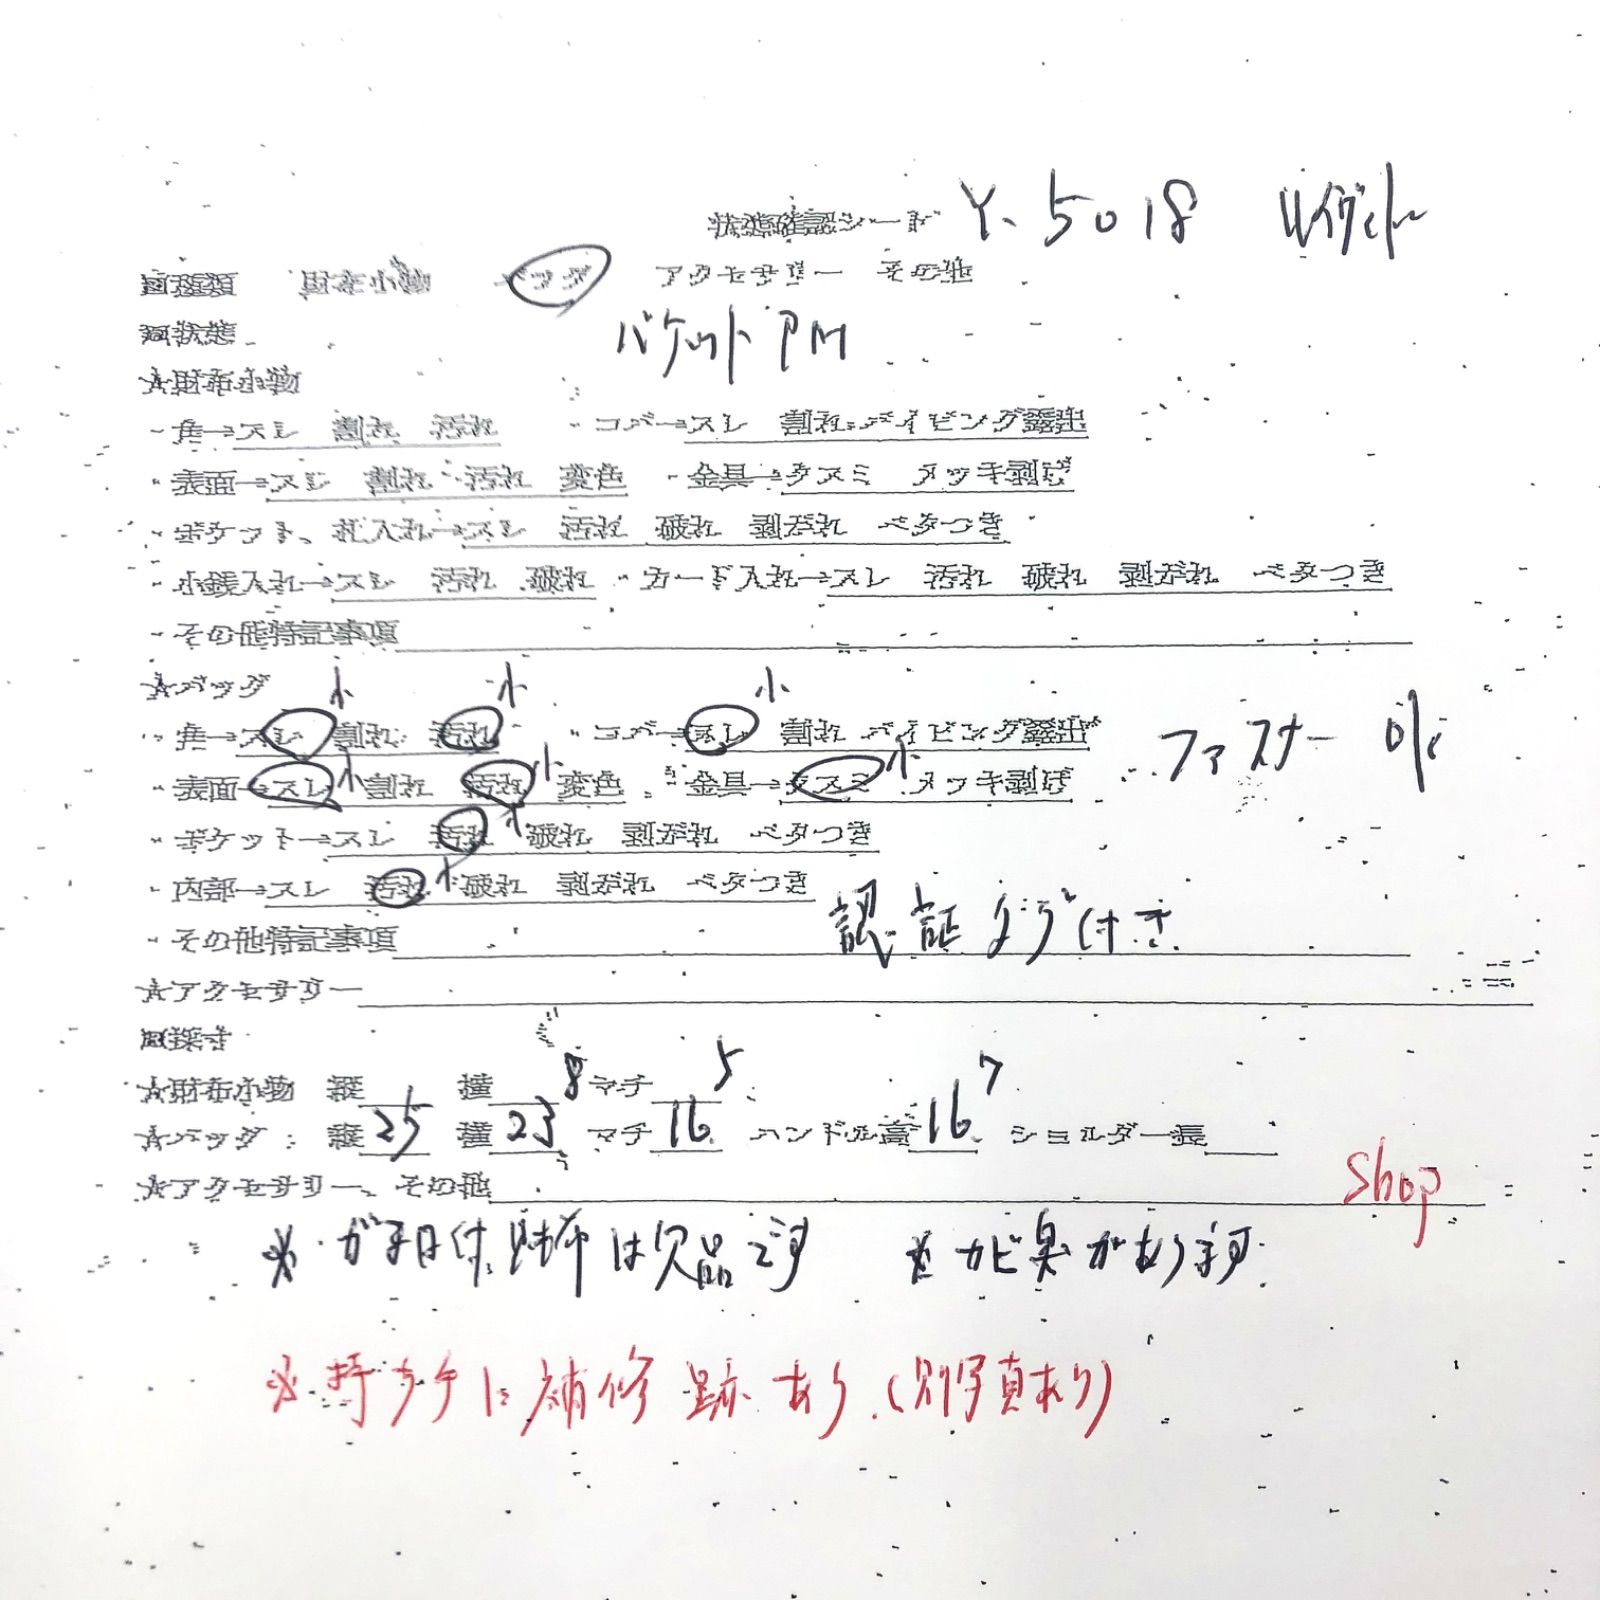 状態確認シート Y、5018 ルイヴィトン
▢種類 財布小物 バッグ アクセサリー その他
▢状態 バケットPM
☆財布小物
・角→スレ 割れ 汚れ ・コバ→スレ 割れ パイピング露出
・表面→スレ 割れ 汚れ 変色 ・金具→クスミ メッキ剥げ
・ポケット、札入れ→スレ 汚れ 破れ 剥がれ ベタつき
・小銭入れ→スレ 汚れ 破れ ・カード入れ→スレ 汚れ 破れ 剥がれ ベタつき
・その他特記事項
☆バッグ 小 小 小
・角→スレ 割れ 汚れ ・コバ→スレ 割れ パイピング露出 ファスナー ok
・表面→スレ 小 割れ 汚れ 小 変色 ・金具→クスミ 小 メッキ剥げ
・ポケット→スレ 汚れ 小 破れ 剥がれ ベタつき
・内部→スレ 汚れ 小 破れ 剥がれ ベタつき
・その他特記事項 認証タグ付き
☆アクセサリー
▢採寸
☆財布小物 縦 横 マチ
☆バッグ:縦25 横23.8 マチ16.5 ハンドル高16.7 ショルダー長
☆アクセサリー、その他 Shop
※ がま口付財布は欠品です ※カビ臭があります
※持ち手に補修跡あり(別写真あり)